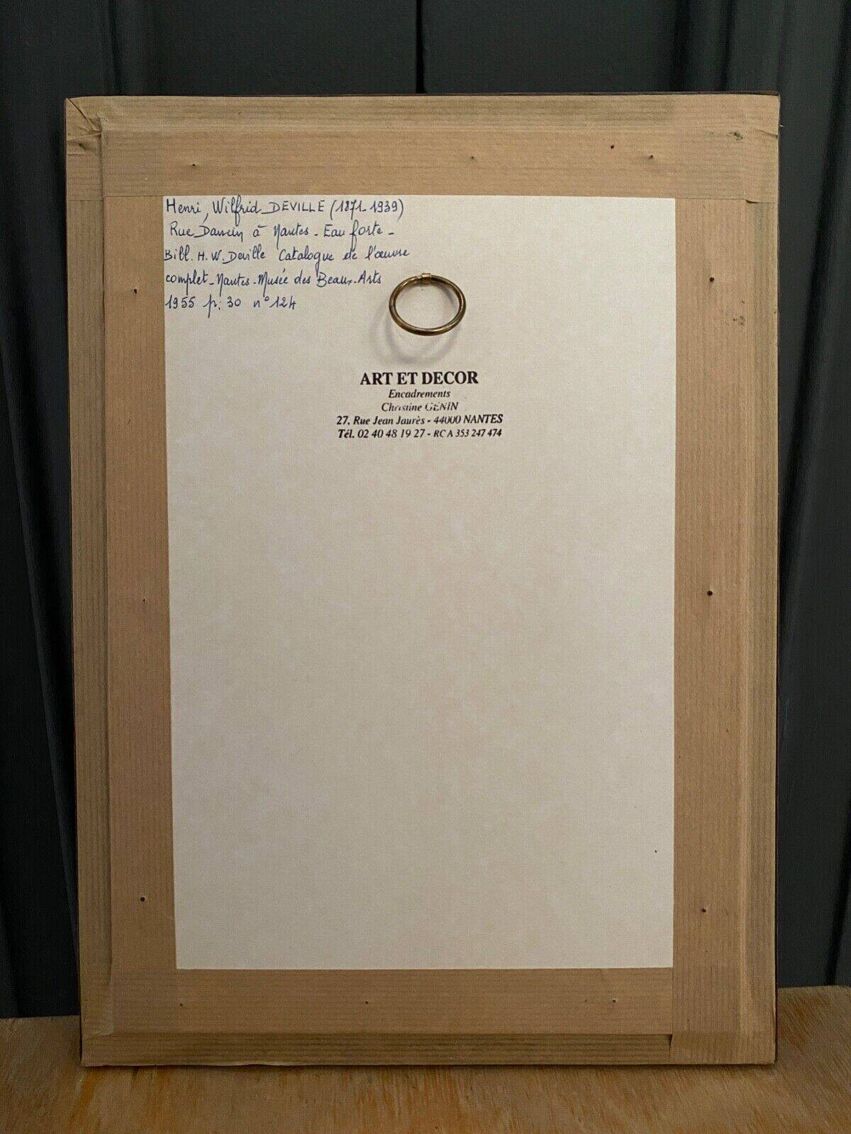 Henri, Wilfrid DEVILLE (1871-1939)
Rue Damein à Nantes - Eau forte -
Bill. H.W. Deville Catalogue de l'œuvre
complet - Nantes - Musée des Beaux-Arts
1955 p. 30 n° 124
ART ET DECOR
Encadrements
Christine GENIN
27, Rue Jean Jaurès - 44000 NANTES
Tél. 02 40 48 19 27 - RC A 353 247 474